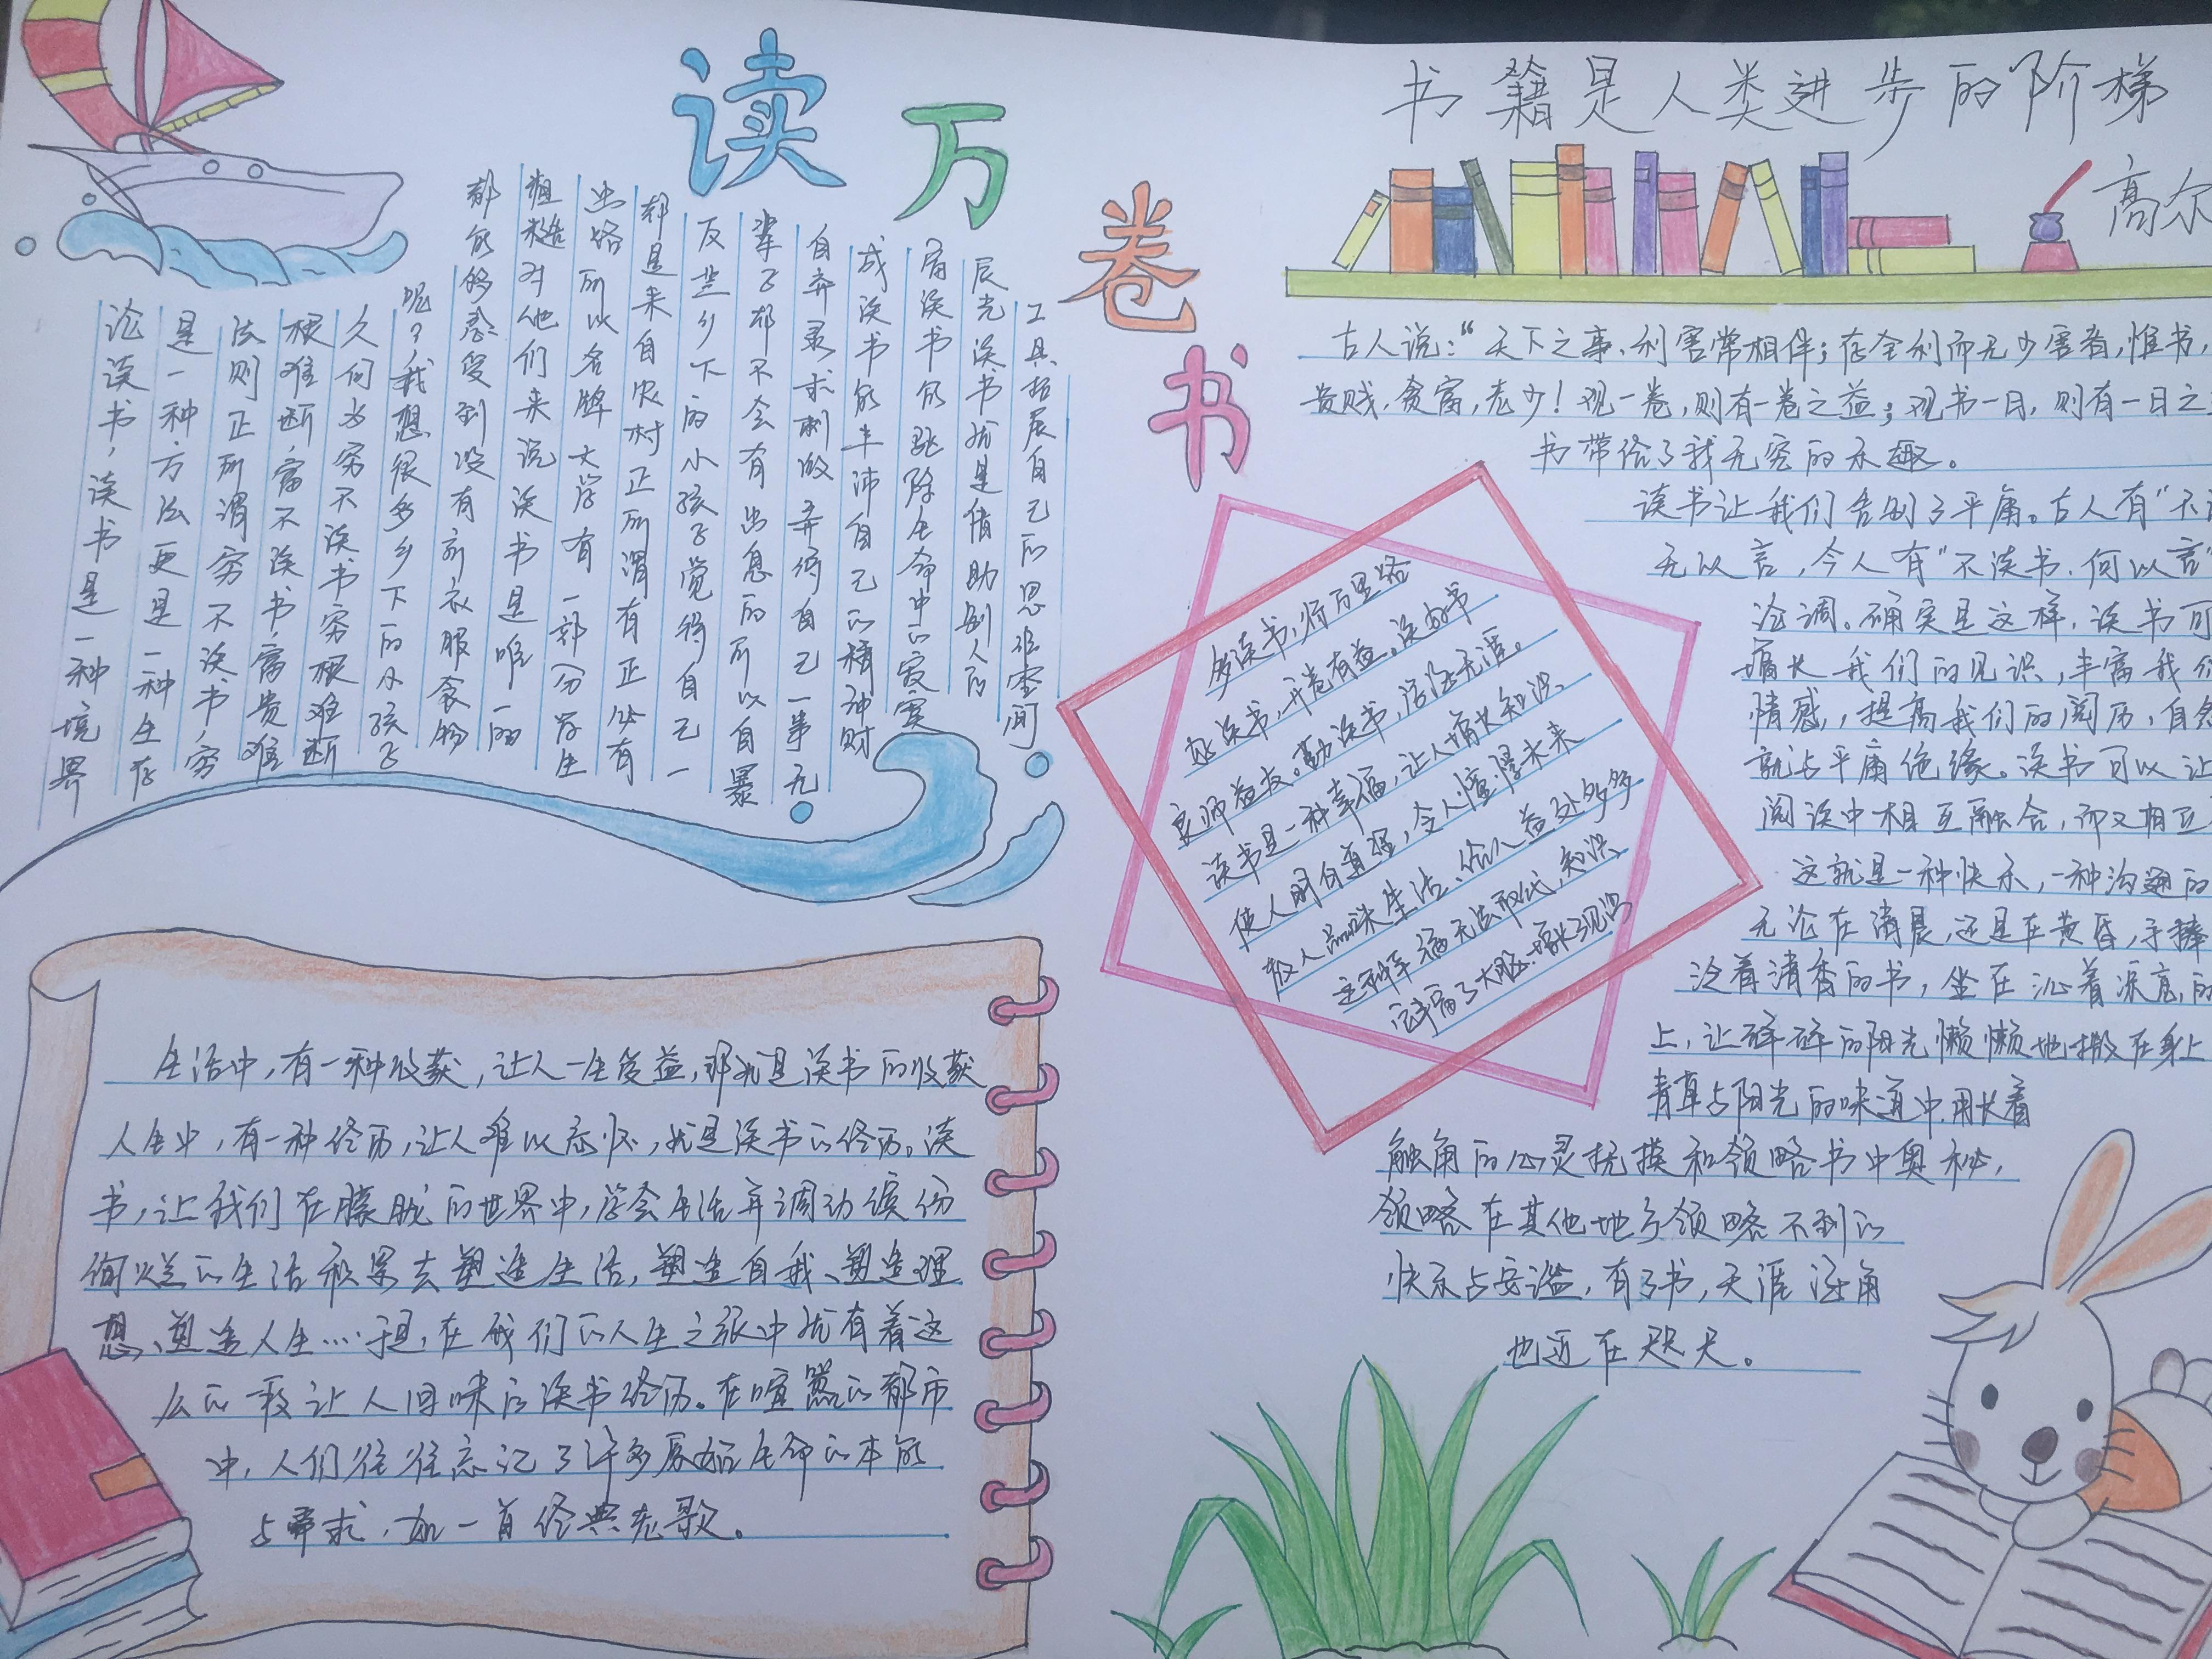 读万卷书
书籍是人类进步的阶梯
高尔
论读书，读书是一种境界
是一种方法更是一种生存
法则正所谓穷不读书，穷
根难断，富不读书，富贵难
久何为穷不读书穷根难断
呢？我想很多乡下的小孩子
都能够感受到没有新衣服食物
粗糙对他们来说读书是唯一的
出路所以名牌大学有一部分学生
都是来自农村正所谓有正必有
反些乡下的小孩子觉得自己一
辈子都不会有出息的所以自暴
自弃 求刺激 弃得自己一事无
成读书能丰沛自己的精神财
富读书能驱除生命中的寂寞
辰光读书就是借助别人的
工具拓展自己的思维空间
生活中，有一种收获，让人一生受益，那就是读书的收获
人生中，有一种经历，让人难以忘怀，就是读书的经历。读
书，让我们在朦胧的世界中，学会生活并调动缤纷
绚烂的生活积累去塑造生活，塑造自我、塑造理
想、塑造人生……于是，在我们的人生之旅中就有着这
么的 让人回味的读书经历。在喧嚣的都市
中，人们往往忘记了许多原始生命的本能
与需求，如一首经典老歌。
多读书，行万里路
好读书，开卷有益。读好书
良师益友。勤读书，活法无涯。
读书是一种幸福，让人增长知识、
使人明白真理，令人憧憬未来
教人品味生活、给人益处多多
这种幸福无法取代，知识、
丰富了大脑、增长了见识
古人说：“天下之事、利害常相伴；存全利而无少害者，惟书，
贵贱、贫富，老少！观一卷，则有一卷之益；观书一日，则有一日之
书带给了我无穷的乐趣。
读书让我们告别了平庸。古人有“不
无以言，今人有“不读书，何以言
论调。确实是这样，读书可
增长我们的见识，丰富我们
情感，提高我们的阅历，自然
就与平庸绝缘。读书可以让
阅读中相互融合，而又相互
这就是一种快乐，一种沟通的
无论在清晨，还是在黄昏，手捧
泛着清香的书，坐在沁着凉意的
上，让碎碎的阳光懒懒地撒在身上
青草与阳光的味道中.用长着
触角的心灵抚摸和领略书中奥秘，
领略在其他地方领略不到的
快乐与安谧，有了书，天涯海角
也近在咫尺。